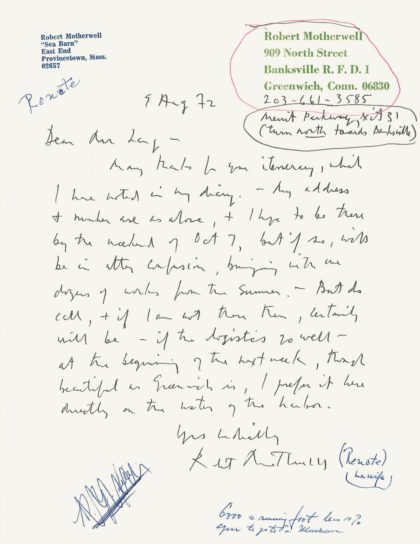 Robert Motherwell
"Sea Barn"
East End
Provincetown, Mass.
02657
Robert Motherwell
909 North Street
Banksville R. F. D. 1
Greenwich, Conn. 06830
203-661-3585
Merritt Parkway, Exit 31
(turn north towards Banksville)
Renate
9 Aug 72
Dear Mr Lang –
Many thanks for your itinerary, which
I have noted in my diary. – My address
& number are as above, & I hope to be there
by the weekend of Oct 7, but if so, will
be in utter confusion, bringing with me
dozens of works from the summer. – But do
call, & if I am not there then, certainly
will be – if the logistics go well –
at the beginning of the next week, though
beautiful as Greenwich is, I prefer it here
directly on the water of the harbor.
Yrs cordially
Robt Motherwell
(Renate)
(his wife)
a running foot
to a Museum